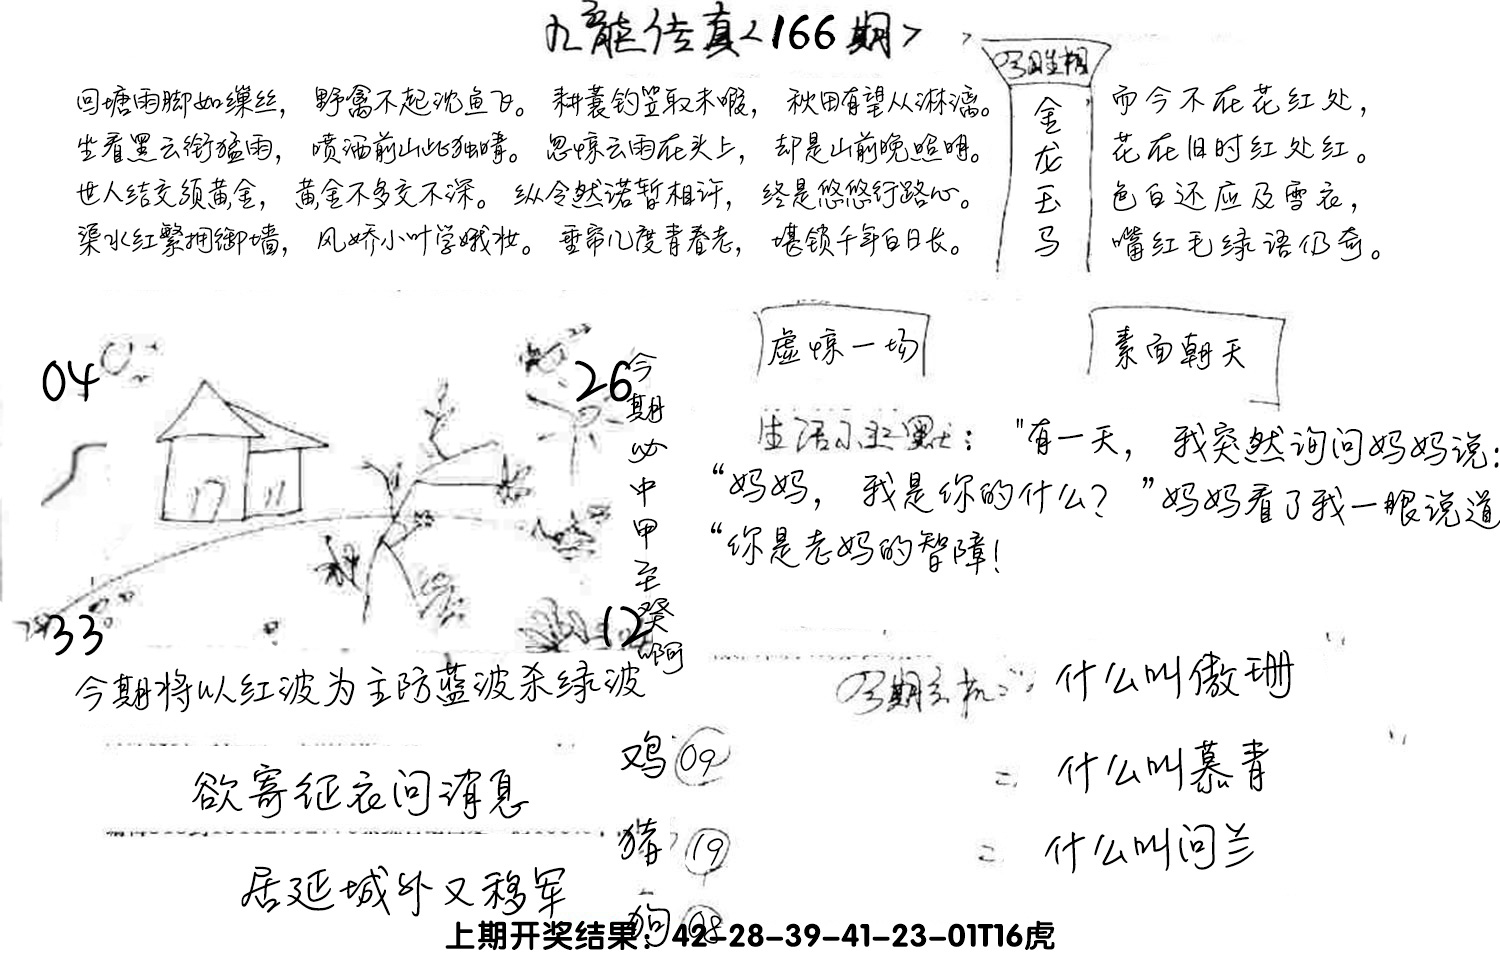 九龙传真<166期>
回塘雨脚如缫丝，野禽不起沈鱼飞。耕蓑钓笠取未暇，秋田有望从淋漓。
坐看黑云衔猛雨，喷洒前山此独晴。忽惊云雨在头上，却是山前晚照明。
世人结交须黄金，黄金不多交不深。纵令然诺暂相许，终是悠悠行路心。
渠水红繁拥御墙，风娇小叶学娥妆。垂帘几度青春老，堪锁千年白日长。
今日生相
金龙玉马
而今不在花红处，
花在旧时红处红。
色白还应及雪衣，
嘴红毛绿语仍奇。
04
26
33
12
今期必中甲至癸啊
虚惊一场
素面朝天
生活小幽默："有一天，我突然询问妈妈说：
“妈妈，我是你的什么？”妈妈看了我一眼说道
“你是老妈的智障！
今期将以红波为主防蓝波杀绿波
今期玄机 什么叫傲珊
什么叫慕青
什么叫问兰
欲寄征衣问消息
居延城外又移军
鸡 09
猪 19
狗 08
上期开奖结果：42-28-39-41-23-01T16虎